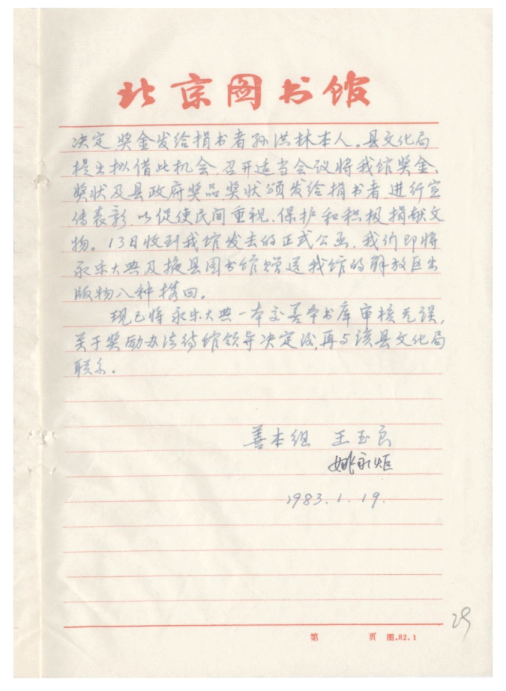 北京图书馆
决定奖金发给捐书者孙洪林本人。县文化局
提出拟借此机会,召开适当会议将我馆奖金、
奖状及县政府奖品奖状颁发给捐书者进行宣
传表彰,以促使民间重视、保护和积极捐献文
物。13日收到我馆发去的正式公函,我们即将
永乐大典及掖县图书馆赠送我馆的解放区出
版物八种携回。
现已将永乐大典一本交善本书库审核无误,
关于奖励办法待馆领导决定后,再与该县文化局
联系。
善本组 王玉良
姚永炬
1983.1.19.
29
第 页 图.82.1